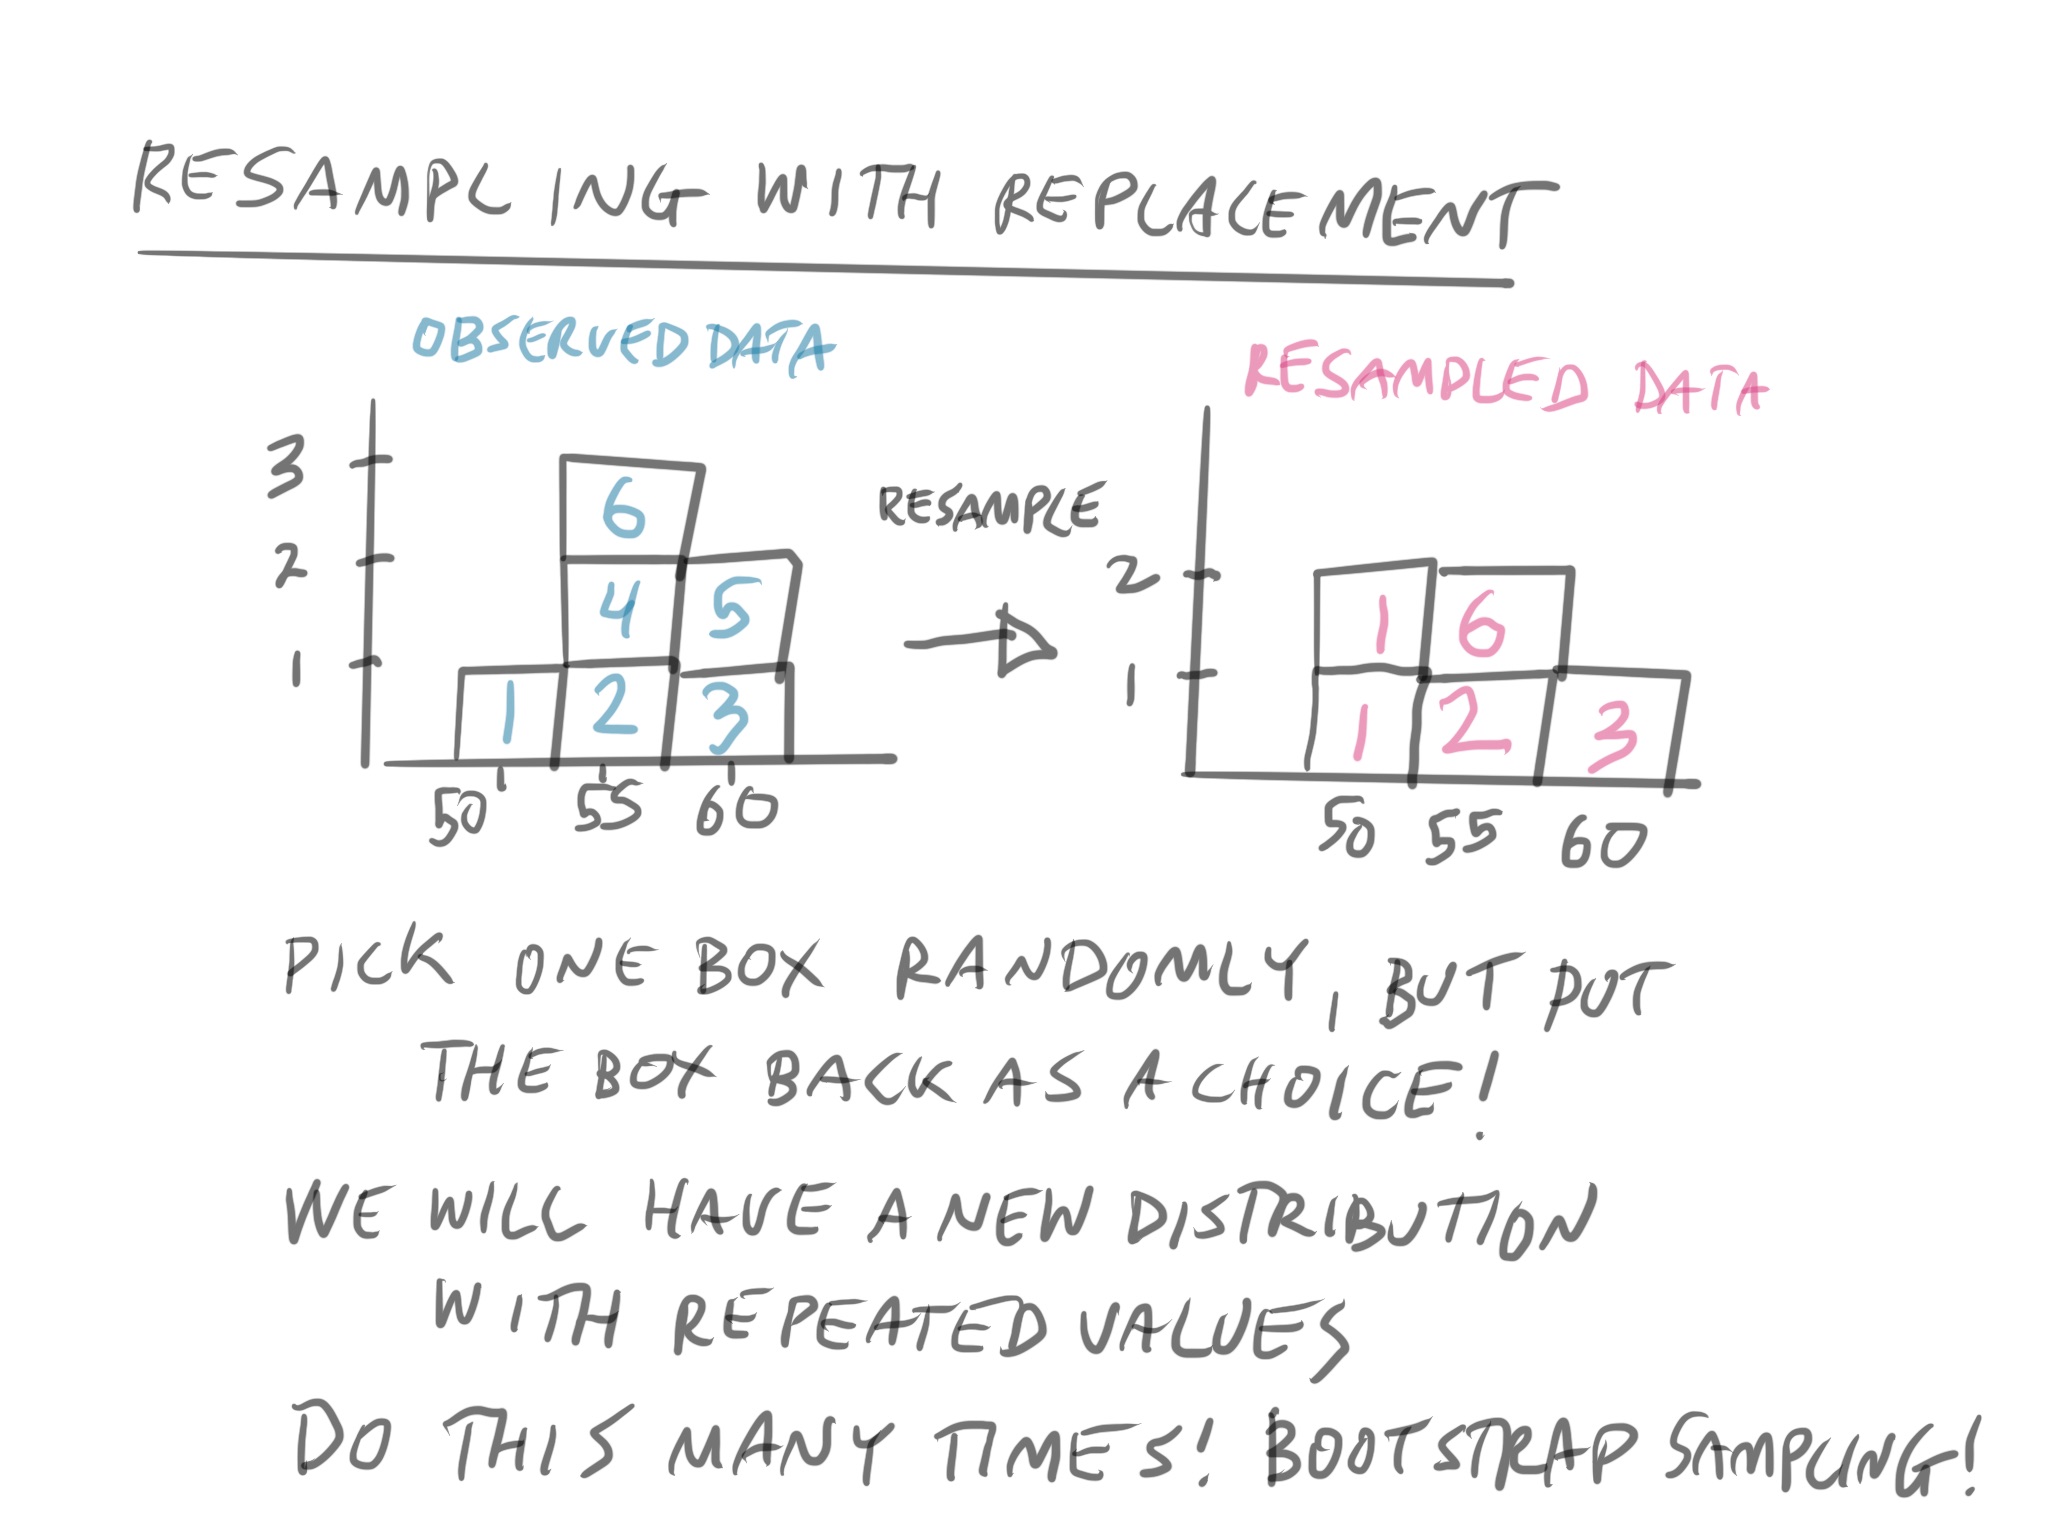 RESAMPLING WITH REPLACEMENT
OBSERVED DATA
3
2
1
6
4 5
1 2 3
50 55 60
RESAMPLE
RESAMPLED DATA
2
1
1 6
1 2 3
50 55 60
PICK ONE BOX RANDOMLY, BUT PUT
THE BOX BACK AS A CHOICE!
WE WILL HAVE A NEW DISTRIBUTION
WITH REPEATED VALUES
DO THIS MANY TIMES! BOOTSTRAP SAMPLING!